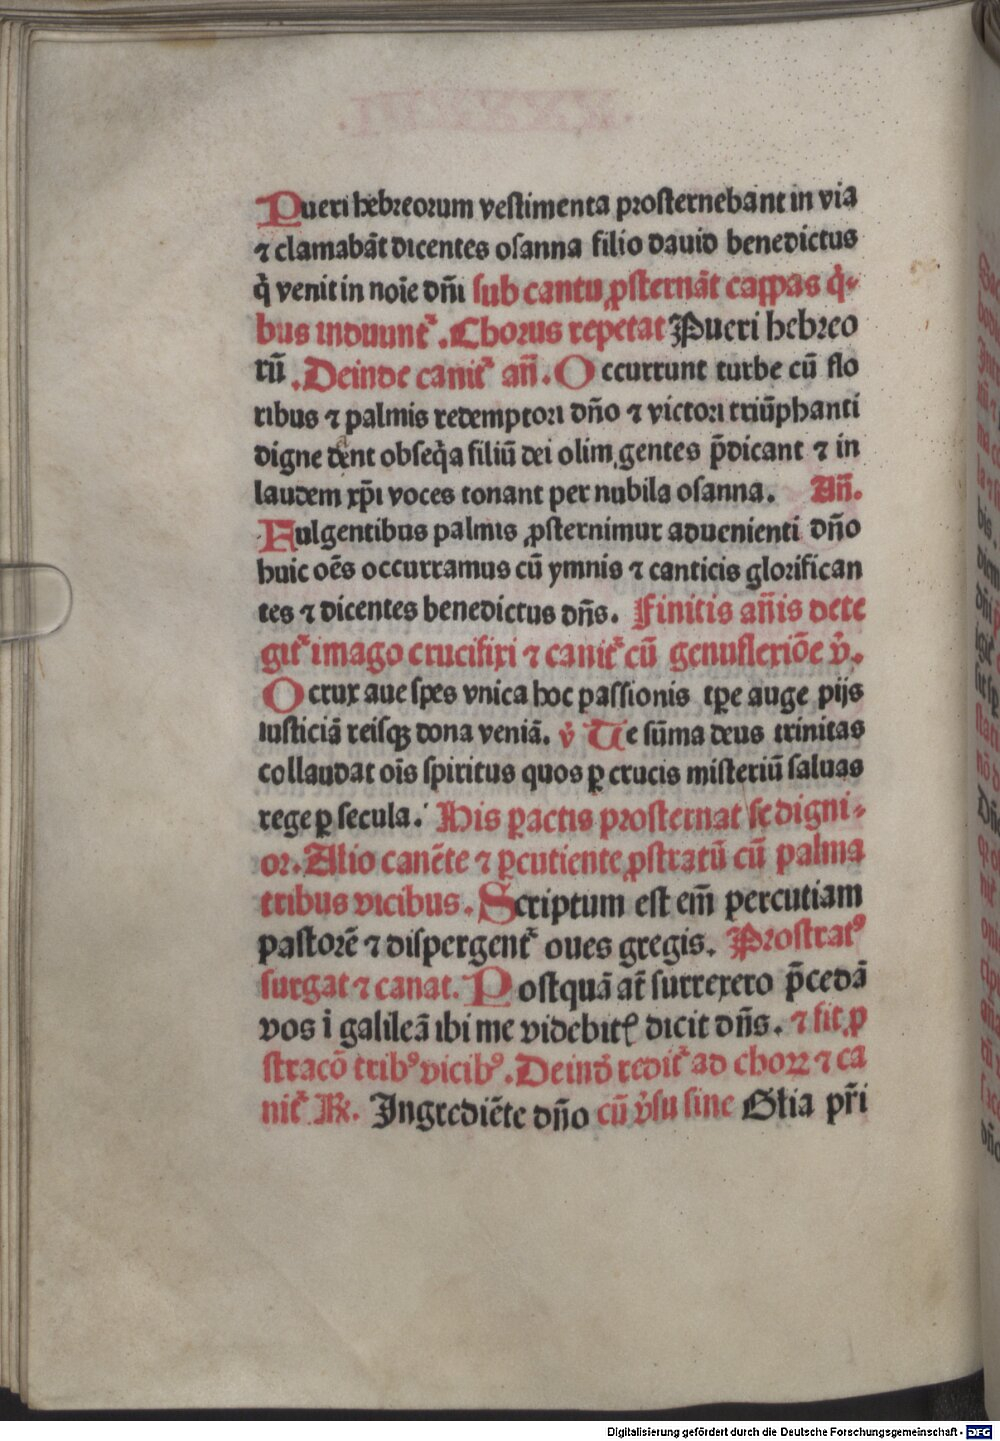 Pueri hebreorum vestimenta prosternebant in via
⁊ clamabāt dicentes osanna filio dauid benedictus
q̇ venit in noīe dn̄i sub cantu ꝓsternāt cappas q̇-
bus induunt᷑. Chorus repetat Pueri hebreo
rū. Deinde canit᷑ an̄. Occurrunt turbe cū flo
ribus ⁊ palmis redemptori dn̄o ⁊ victori triūphanti
digne dent obseq̇a filiū dei olim gentes p̄dicant ⁊ in
laudem xp̄i voces tonant per nubila osanna. An̄.
Fulgentibus palmis ꝓsternimur aduenienti dn̄o
huic oēs occurramus cū ymnis ⁊ canticis glorifican
tes ⁊ dicentes benedictus dn̄s. Finitis an̄is dete
git᷑ imago crucifixi ⁊ canit᷑ cū genuflexiōe v̇.
O crux aue spes vnica hoc passionis tꝑe auge pijs
iusticiā reisqꝫ dona veniā. v̇ Te sūma deus trinitas
collaudat oīs spiritus quos ꝑ crucis misteriū saluas
rege ꝑ secula. His ꝑactis prosternat se digni-
or. Alio canēte ⁊ ꝑcutiente ꝓstratū cū palma
tribus vicibus. Scriptum est em̄ percutiam
pastorē ⁊ dispergent᷑ oues gregis. Prostratꝰ
surgat ⁊ canat. Postquā at̄ surrexero p̄cedā
vos ī galileā ibi me videbitꝭ dicit dn̄s. ⁊ fit ꝓ
stracō tribꝰ vicibꝰ. Deinđ redit᷑ ad choꝝ ⁊ ca
nit᷑ ℟. Ingrediēte dn̄o cū v̇su sine Gl̄ia pr̄i
Digitalisierung gefördert durch die Deutsche Forschungsgemeinschaft - DFG